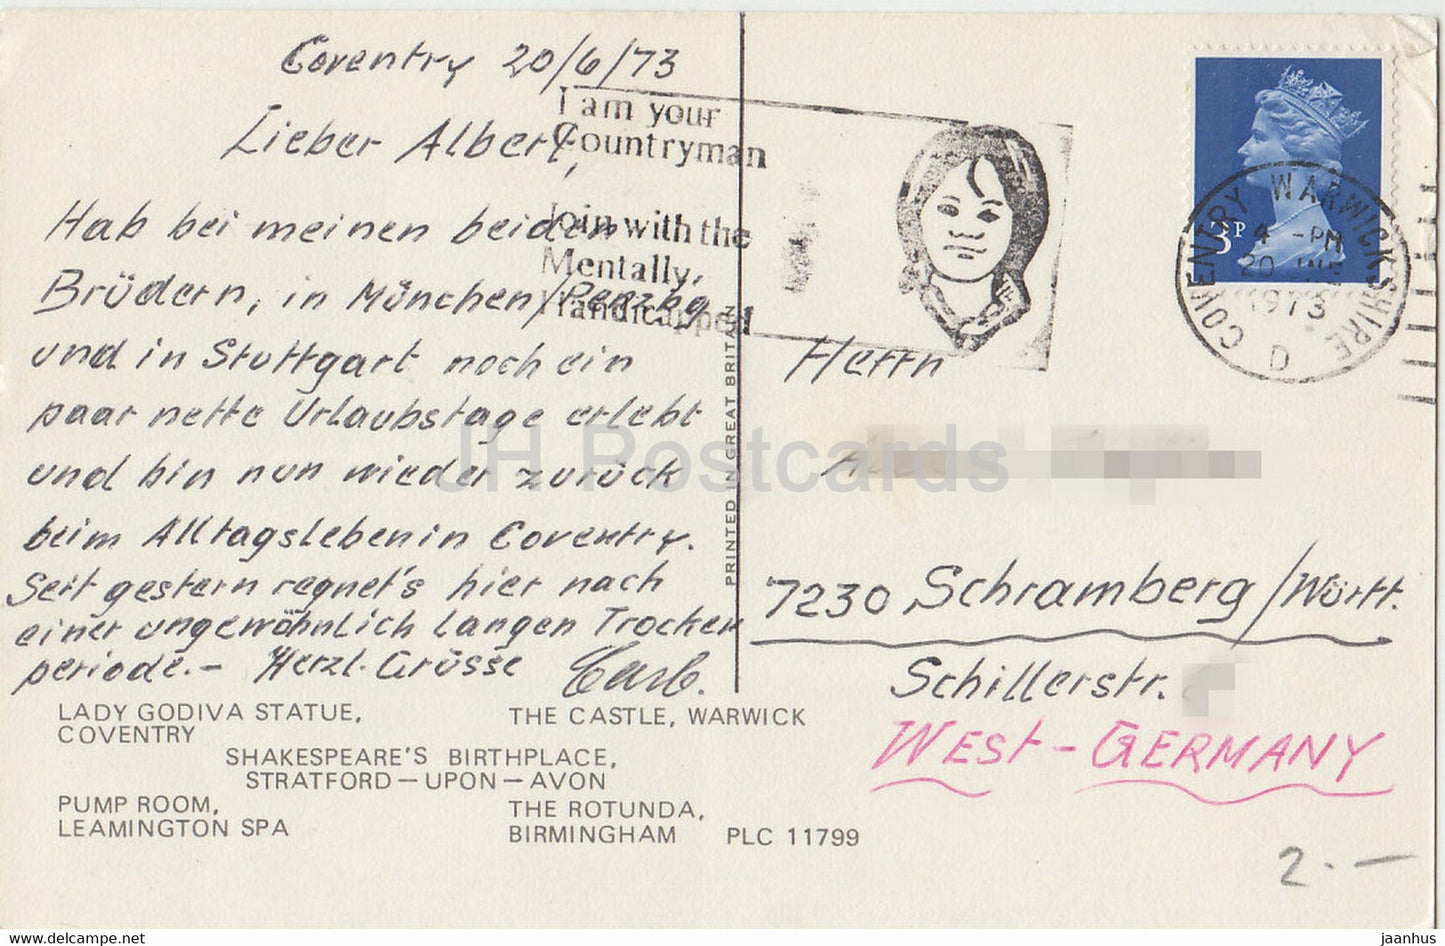 Coventry 20/6/73
Lieber Albert,
Hab bei meinen beiden
Brüdern, in München/Penzbg
und in Stuttgart noch ein
paar nette Urlaubstage erlebt
und bin nun wieder zurück
beim Alltagsleben in Coventry.
Seit gestern regnet's hier nach
einer ungewöhnlich langen Trocken
periode.- Herzl. Grüsse
LADY GODIVA STATUE,
COVENTRY
THE CASTLE, WARWICK
SHAKESPEARE'S BIRTHPLACE,
STRATFORD-UPON-AVON
PUMP ROOM,
LEAMINGTON SPA
THE ROTUNDA,
BIRMINGHAM PLC 11799
PRINTED IN GREAT BRITAIN
I am your
Countryman
Join with the
Mentally,
Handicapped
3P
COVENTRY WARWICKSHIRE
4 -PM
20
1973
D
Herrn
7230 Schramberg/Württ.
Schillerstr.
WEST-GERMANY
2.-
JH Postcards
hippostcard.com/store/jh-postcards-net
jaanhus